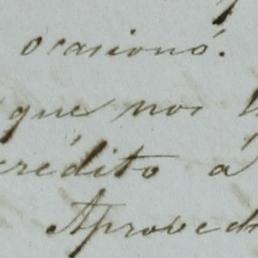 ocasionó.
que nos
crédito á
Aproved